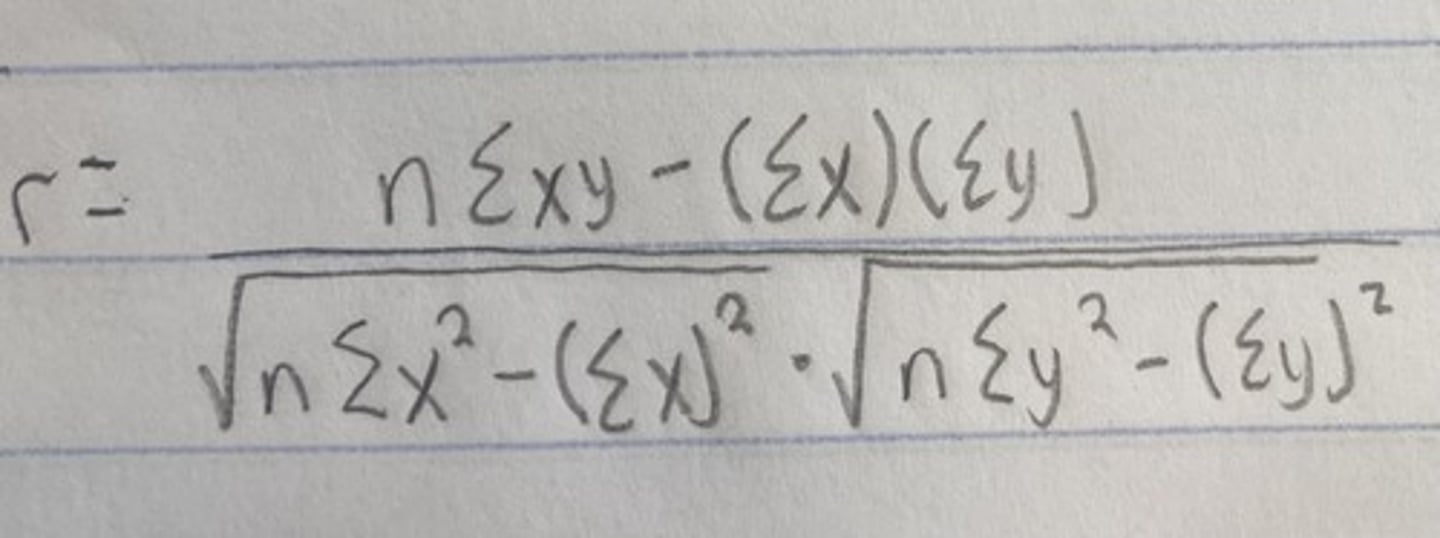 r = n Σxy - (Σx)(Σy)
√n Σx² - (Σx)² · √n Σy² - (Σy)²